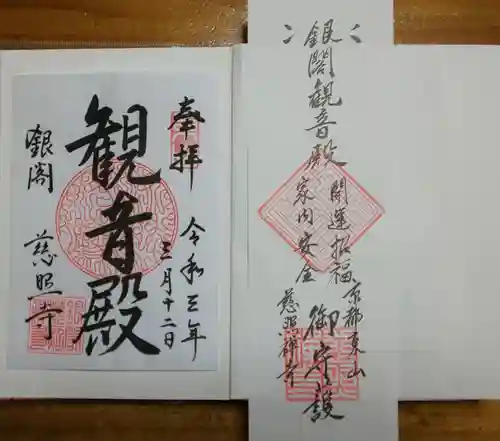 奉拝
令和三年
三月十二日
観音殿
銀閣 慈照寺
銀閣観音殿
開運招福
家内安全
御守護
京都東山
慈照禅寺